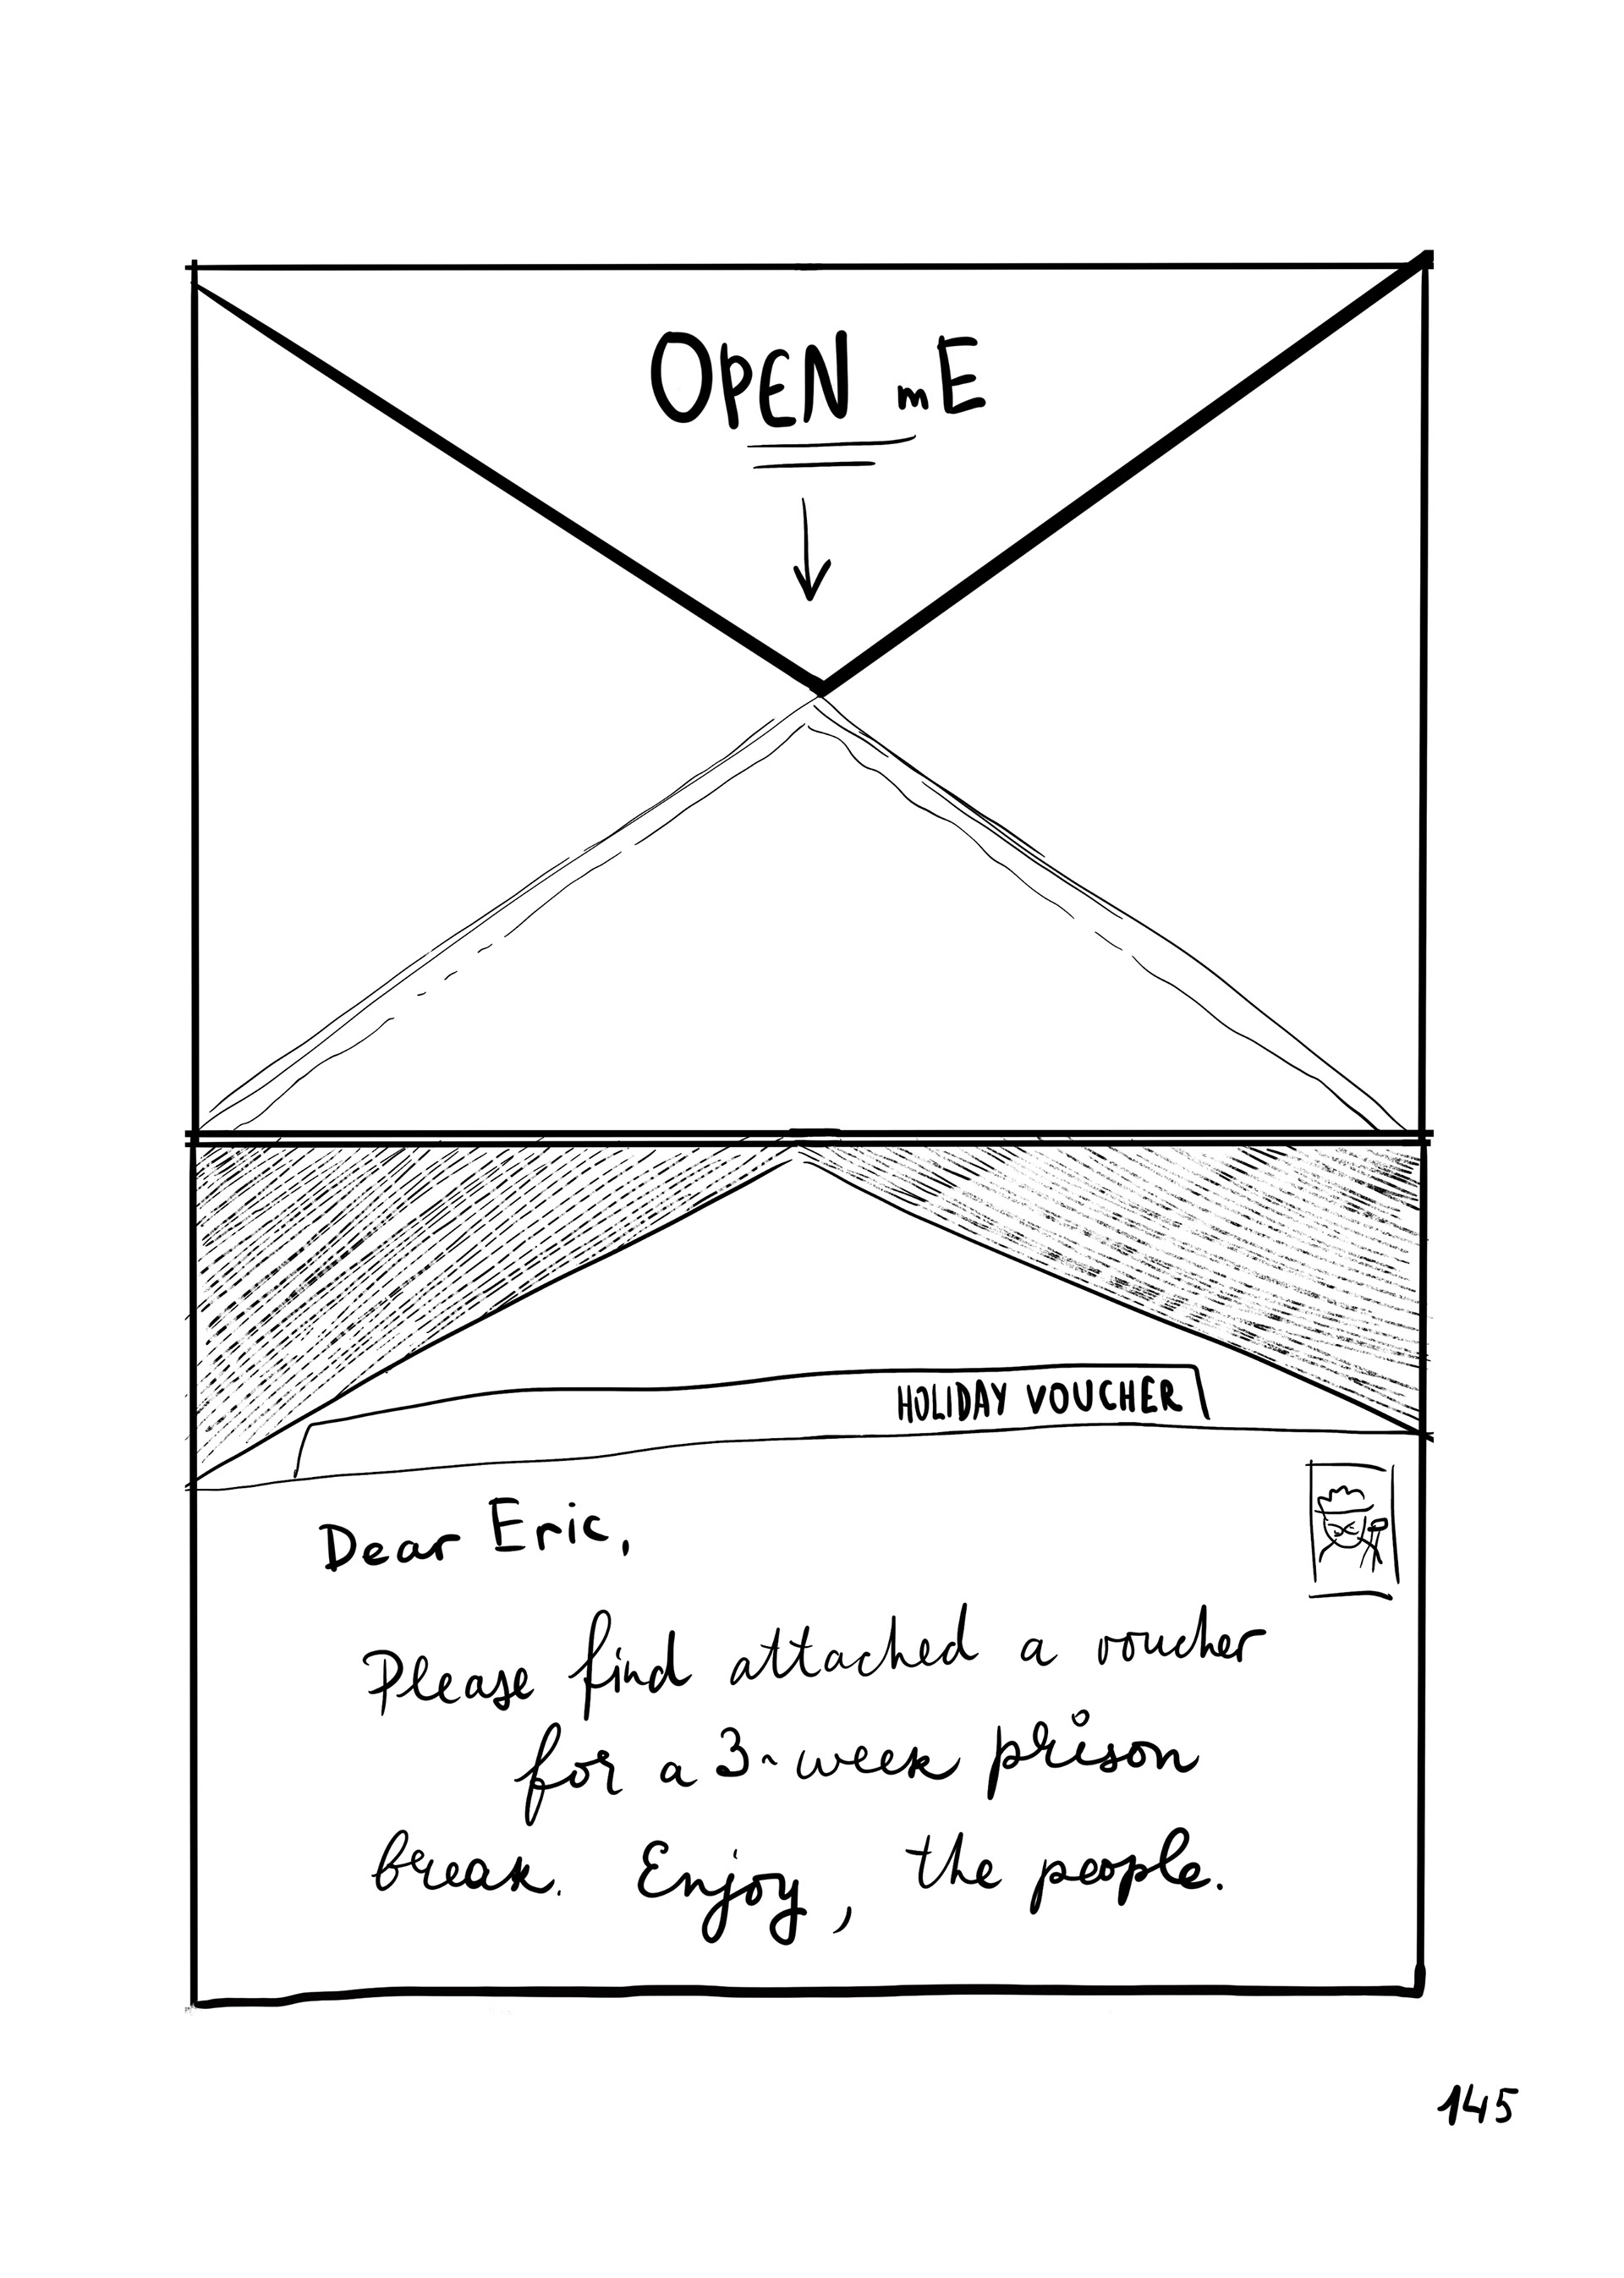 OPEN mE
HOLIDAY VOUCHER
Dear Eric,
Please find attached a voucher
for a 3-week prison
break. Enjoy, the people.
145